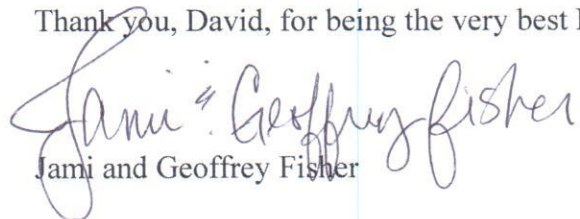 Thank you, David, for being the very best
Jami & Geoffrey Fisher
Jami and Geoffrey Fisher